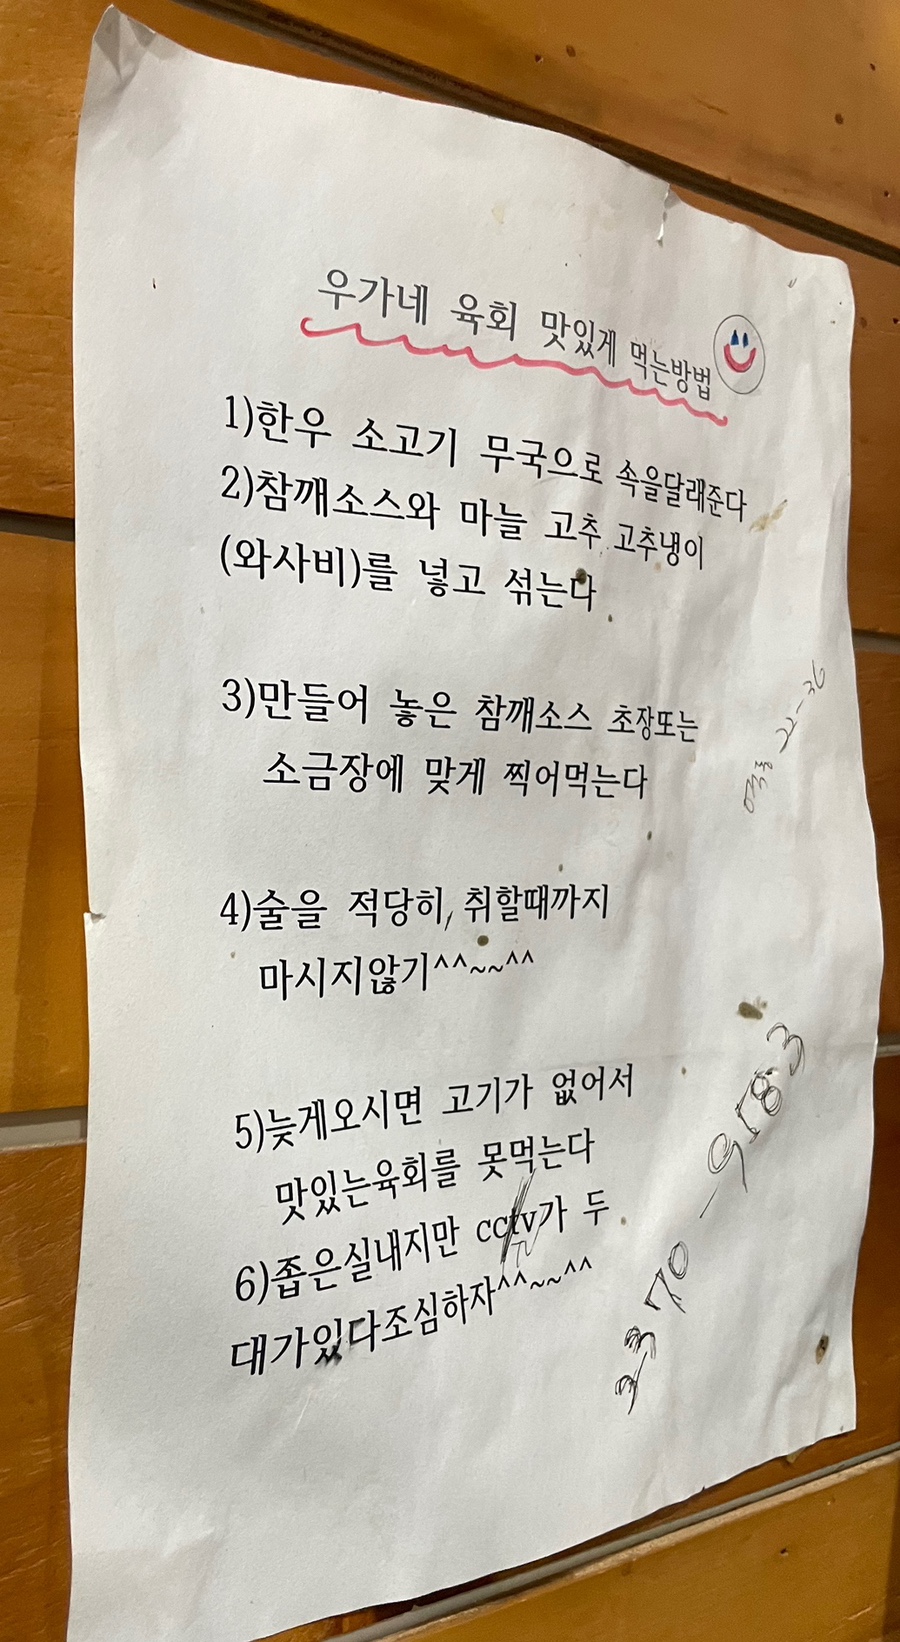 우가네 육회 맛있게 먹는방법
1)한우 소고기 무국으로 속을달래준다
2)참깨소스와 마늘 고추, 고추냉이
(와사비)를 넣고 섞는다
3)만들어 놓은 참깨소스 초장또는
소금장에 맞게 찍어먹는다
4)술을 적당히, 취할때까지
마시지않기^^~~^^
5)늦게오시면 고기가 없어서
맛있는육회를 못먹는다
6)좁은실내지만 cctv가 두
대가있다조심하자^^~~^^
22-36
3370-9583